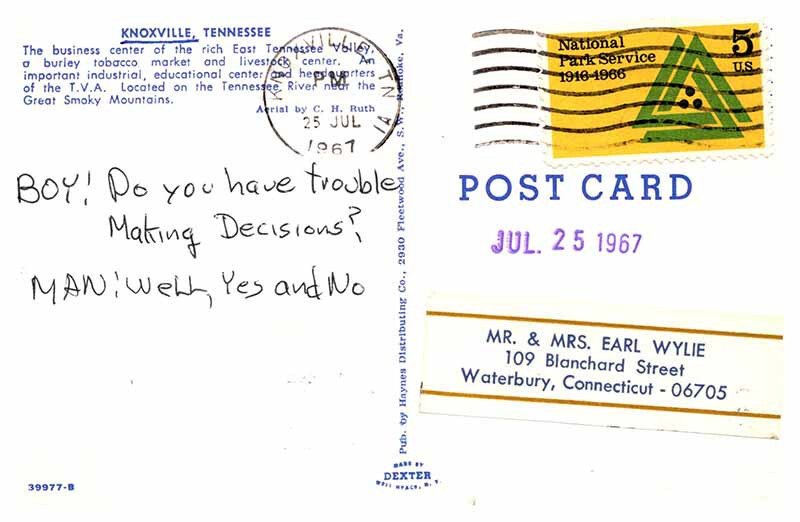 KNOXVILLE, TENNESSEE
The business center of the rich East Tennessee Valley,
a burley tobacco market and livestock center. An
important industrial, educational center and headquarters
of the T.V.A. Located on the Tennessee River near the
Great Smoky Mountains.
Aerial by C. H. Ruth
KNOXVILLE TN
PM
25 JUL
1967
National
Park Service
1916-1966
5
U.S.
BOY! Do you have trouble
Making Decisions?
MAN! Well, Yes and No
POST CARD
JUL. 25 1967
MR. & MRS. EARL WYLIE
109 Blanchard Street
Waterbury, Connecticut - 06705
Pub. by Haynes Distributing Co., 2930 Fleetwood Ave., S.W., Roanoke, Va.
39977-B
MADE BY
DEXTER
WEST NYACK, N. Y.